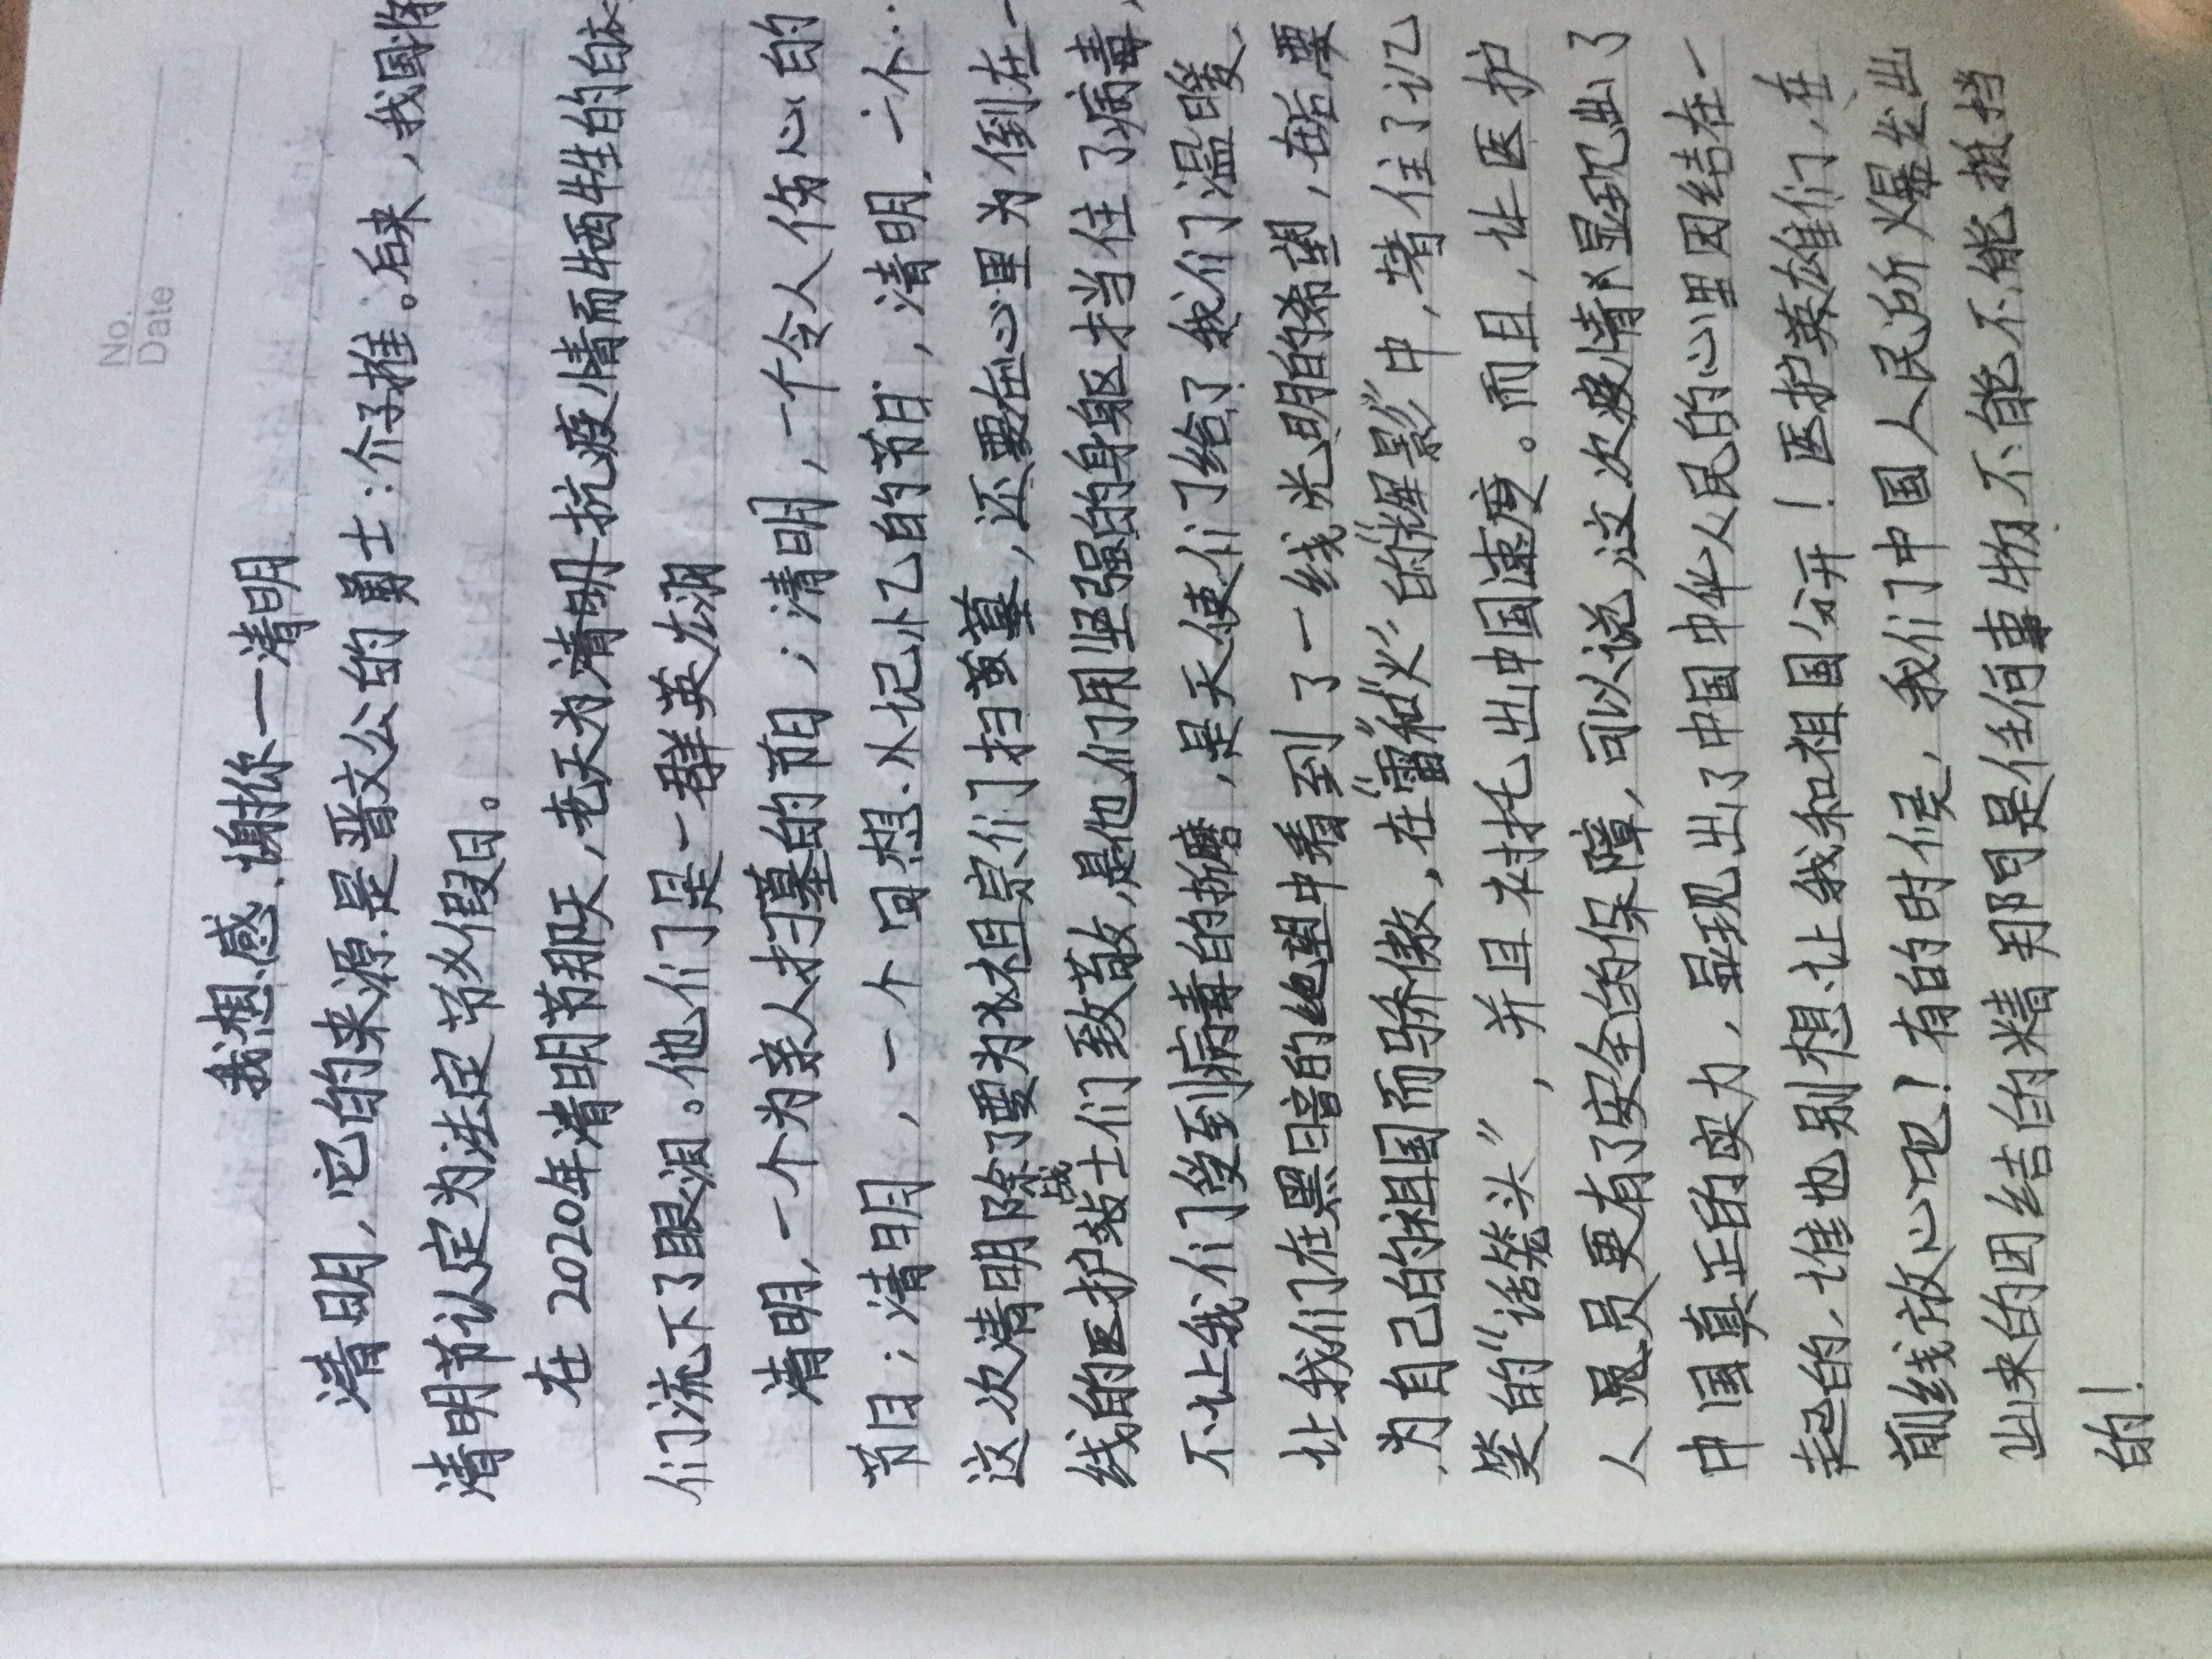 No.
Date
我想感谢你——清明
清明，它的来源是晋文公的勇士：介子推。后来，我国将
清明节认定为法定节假日。
在2020年清明节那天，老天为清明抗疫情而牺牲的白衣
们流下了眼泪。他们是一群英左羽
清明，一个为亲人扫墓的节日；清明，一个令人伤心的
节日；清明，一个回想、从记忆的节日，清明，一个…
这次清明除了要为祖宗们扫墓，还要在心里为倒在一
线的医护战士们致敬，是他们用坚强的身躯挡住了病毒，
不让我们受到病毒的折磨，是天使们给了我们温暖、
让我们在黑暗的绝望中看到了一线光明的希望，在后要
为自己的祖国而骄傲，在“雷和“火”的“辉影”中，堵住了记
笑的“话笼头”，并且衬托出中国速度。而且，让医护
人员更有了安全的保障，可以说，这次疫情显现出了
中国真正的实力，显现出了中国中华人民的心里因结在一
起的、谁也别想让我和祖国分开！医护英雄们，在
前线放心吧！有的时侯，我们中国人民所爆发出
出来的因结的精那可是任何事物不能不能抵挡
的！